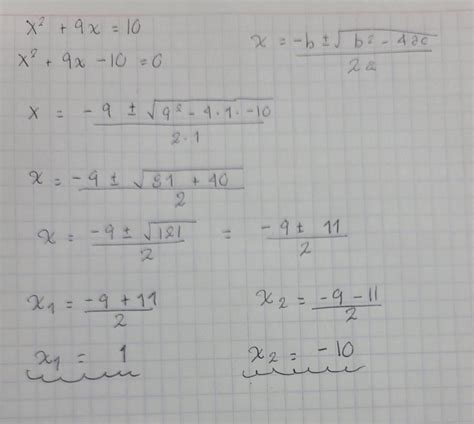 x² + 9x = 10
x² + 9x - 10 = 0
x = -b ± √b² - 4ac / 2a
x = -9 ± √9² - 4·1·-10 / 2·1
x = -9 ± √81 + 40 / 2
x = -9 ± √121 / 2 = -9 ± 11 / 2
x₁ = -9 + 11 / 2
x₂ = -9 - 11 / 2
x₁ = 1
x₂ = -10